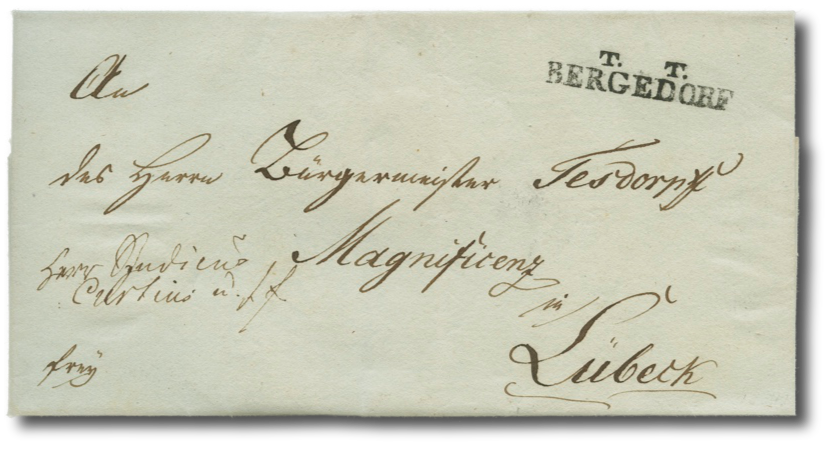 T. T.
BERGEDORF
An
des Herrn Bürgermeister Tesdorpff
Magnificenz
Herr Syndicus
Curtius u.
in
Lübeck
frey